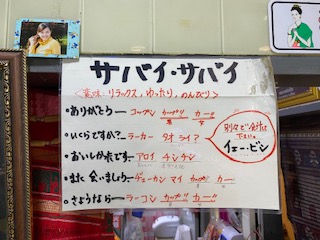 サバイ・サバイ
＜意味、リラックス、ゆったり、のんびり＞
・ありがとう― コップン カップ!! カー!!
・いくらですか?― ラーカー タオ ライ?
・おいしかったです― アロイ チンチン
・また会いましょう― カップ カー
・さようなら― ラーコン カップ!! カー!!
別々で会計は
下さい
イェー・ビン